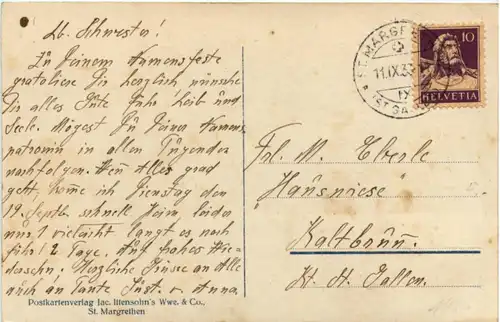 Lb. Schwester!
Zu Deinem Namensfeste
gratuliere Dir herzlich wünsche
Dir alles Gute für Leib und
Seele. Mögest Du Deiner Namens
patronin in allen Tugenden
nachfolgen. Wenn Alles grad
geht, komme ich Dienstag den
19. Septb. schnell Heim, leider
nur 1 vieleicht langt es noch
für 2 Tage. Auf frohes Wie-
dersehn. Herzliche Grüsse an Alle
auch an Tante Just. v. Anna.
Postkartenverlag Jac. Ittensohn's Wwe. & Co.,
St. Margrethen
ST. MARGRE
11.IX.33
(ST. GA
10
HELVETIA
Frl. M. Eberle
Hauswiese
Kaltbrunn.
Kt. St. Gallen.